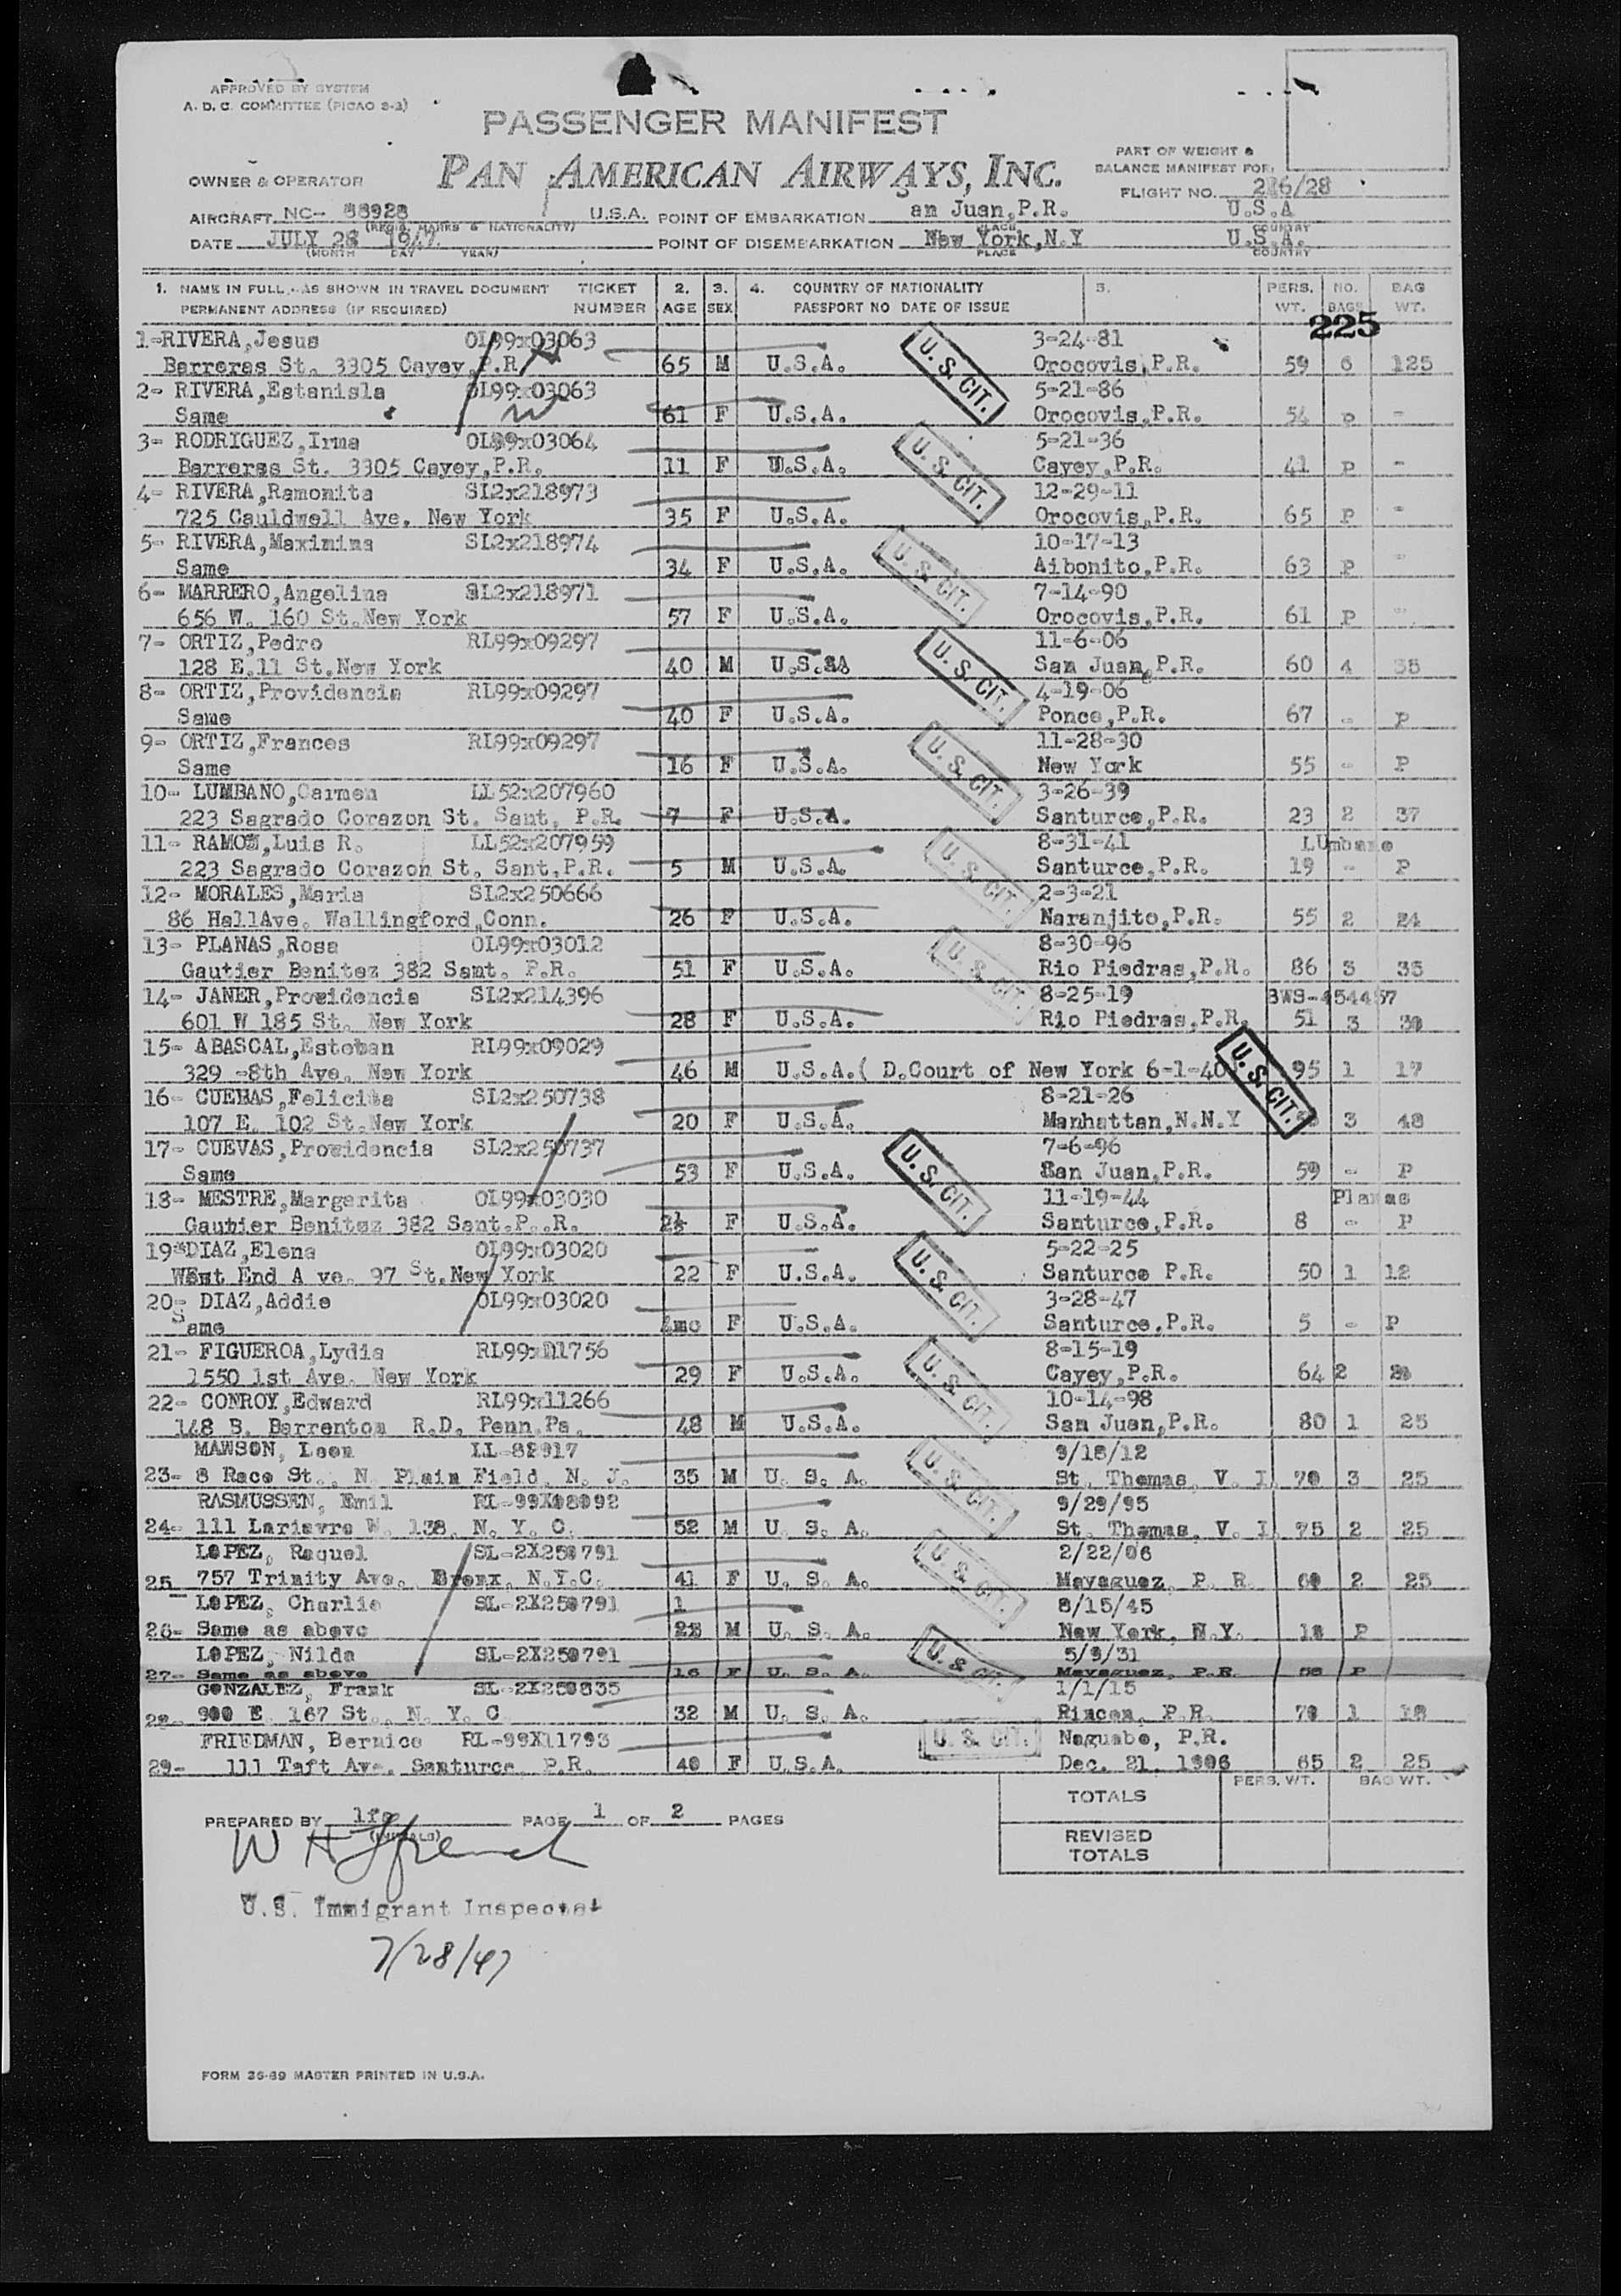 APPROVED BY SYSTEM
A. D. C. COMMITTEE (PICAO 2-2)
PASSENGER MANIFEST
PAN AMERICAN AIRWAYS, INC.
PART OF WEIGHT &
BALANCE MANIFEST FOR:
OWNER & OPERATOR
FLIGHT NO. /28
AIRCRAFT NC- 88928 U.S.A. POINT OF EMBARKATION an Juan, P.R. U.S.A
(REGIS. MARKS & NATIONALITY) PLACE COUNTRY
DATE JULY 28 1947 POINT OF DISEMBARKATION New York, N.Y U.S.A.
(MONTH DAY YEAR) PLACE COUNTRY
1. NAME IN FULL, AS SHOWN IN TRAVEL DOCUMENT TICKET 2. 3. 4. COUNTRY OF NATIONALITY 5. PERS. NO. BAG
PERMANENT ADDRESS (IF REQUIRED) NUMBER AGE SEX PASSPORT NO DATE OF ISSUE WT. BAGS WT.
225
1-RIVERA,Jesus OL99x03063 3-24-81
Barreras St. 3305 Cayey,P.R. 65 M U.S.A. U.S. CIT. Orocovis,P.R. 59 6 125
2- RIVERA,Estanisla OL99x03063 5-21-86
Same 61 F U.S.A. Orocovis,P.R. 54 P -
3- RODRIGUEZ,Irma OL99x03064 5-21-36
Barreras St. 3305 Cayey,P.R. 11 F U.S.A. U.S. CIT. Cayey,P.R. 41 P -
4- RIVERA,Ramonita SL2x218973 12-29-11
725 Cauldwell Ave. New York 35 F U.S.A. Orocovis,P.R. 65 P -
5- RIVERA,Maximina SL2x218974 10-17-13
Same 34 F U.S.A. U.S. CIT. Aibonito,P.R. 63 P -
6- MARRERO,Angelina SL2x218971 7-14-90
656 W. 160 St.New York 57 F U.S.A. Orocovis,P.R. 61 P -
7- ORTIZ,Pedro RL99x09297 11-6-06
128 E.11 St.New York 40 M U.S.A U.S. CIT. San Juan,P.R. 60 4 35
8- ORTIZ,Providencia RL99x09297 4-19-06
Same 40 F U.S.A. Ponce,P.R. 67 - P
9- ORTIZ,Frances RL99x09297 11-28-30
Same 16 F U.S.A. U.S. CIT. New York 55 - P
10- LUMBANO,Carmen LL52x207960 3-26-39
223 Sagrado Corazon St. Sant, P.R. 7 F U.S.A. Santurce,P.R. 23 2 37
11- RAMOS,Luis R. LL52x207959 8-31-41 LUmbano
223 Sagrado Corazon St. Sant,P.R. 5 M U.S.A. U.S. CIT. Santurce,P.R. 19 - P
12- MORALES,Maria SL2x250666 2-3-21
86 HallAve. Wallingford,Conn. 26 F U.S.A. Naranjito,P.R. 55 2 24
13- PLANAS,Rosa OL99x03012 8-30-96
Gautier Benitez 382 Sant. P.R. 51 F U.S.A. U.S. CIT. Rio Piedras,P.R. 86 3 35
14- JANER,Providencia SL2x214396 8-25-19 BWS-454457
601 W 185 St. New York 28 F U.S.A. Rio Piedras,P.R. 51 3 30
15- ABASCAL,Esteban RL99x09029
329 -8th Ave. New York 46 M U.S.A.( D.Court of New York 6-1-40 U.S. CIT. 95 1 17
16- CUEBAS,Felicita SL2x250738 8-21-26
107 E. 102 St.New York 20 F U.S.A. Manhattan,N.N.Y 3 48
17- CUEVAS,Providencia SL2x250737 7-6-96
Same 53 F U.S.A. U.S. CIT. San Juan,P.R. 59 - P
18- MESTRE,Margarita OL99x03030 11-19-44 Planas
Gautier Benitez 382 Sant.P..R. 2½ F U.S.A. Santurce,P.R. 8 - P
19-DIAZ,Elena OL99x03020 5-22-25
WEst End A ve. 97 St.New York 22 F U.S.A. U.S. CIT. Santurce P.R. 50 1 12
20- DIAZ,Addie OL99x03020 3-28-47
Same 4mo F U.S.A. Santurce.P.R. 5 - P
21- FIGUEROA,Lydia RL99x11756 8-15-19
1550 1st Ave. New York 29 F U.S.A. U.S. CIT. Cayey,P.R. 64 2
22- CONROY,Edward RL99x11266 10-14-98
148 B. Barrenton R.D. Penn.Pa. 48 M U.S.A. San Juan,P.R. 80 1 25
MAWSON, Leon LL-82917 9/18/12
23- 8 Race St., N. Plain Field, N. J. 35 M U. S. A. U.S. CIT. St. Thomas, V. I. 70 3 25
RASMUSSEN, Emil RL-99X08092 9/29/95
24- 111 Lariavre W. 138, N. Y. C. 52 M U. S. A. St. Thomas, V. I. 75 2 25
LOPEZ, Raquel SL-2X250791 2/22/06
25 757 Trinity Ave. Bronx, N.Y.C. 41 F U. S. A. U.S. CIT. Mayaguez, P. R. 60 2 25
LOPEZ, Charlie SL-2X250791 1 8/15/45
26- Same as above M U. S. A. New York, N.Y. 18 P
LOPEZ, Nilda SL-2X250791 5/9/31
27- Same as above 16 F U. S. A. U.S. CIT. Mayaguez, P.R. 50 P
GONZALEZ, Frank SL-2X250835 1/1/15
28 900 E. 167 St., N. Y. C. 32 M U. S. A. Rincon, P.R. 70 1 18
FRIEDMAN, Bernice RL-99X11793 U.S. CIT. Naguabo, P.R.
29- 111 Taft Ave. Santurce, P.R. 40 F U.S.A. Dec. 21, 1906 65 2 25
PERS. WT. BAG WT.
TOTALS
PREPARED BY lfs PAGE 1 OF 2 PAGES
(INITIALS)
REVISED
TOTALS
W H Ffrench
U.S. Immigrant Inspector
7/28/47
FORM 36-69 MASTER PRINTED IN U.S.A.